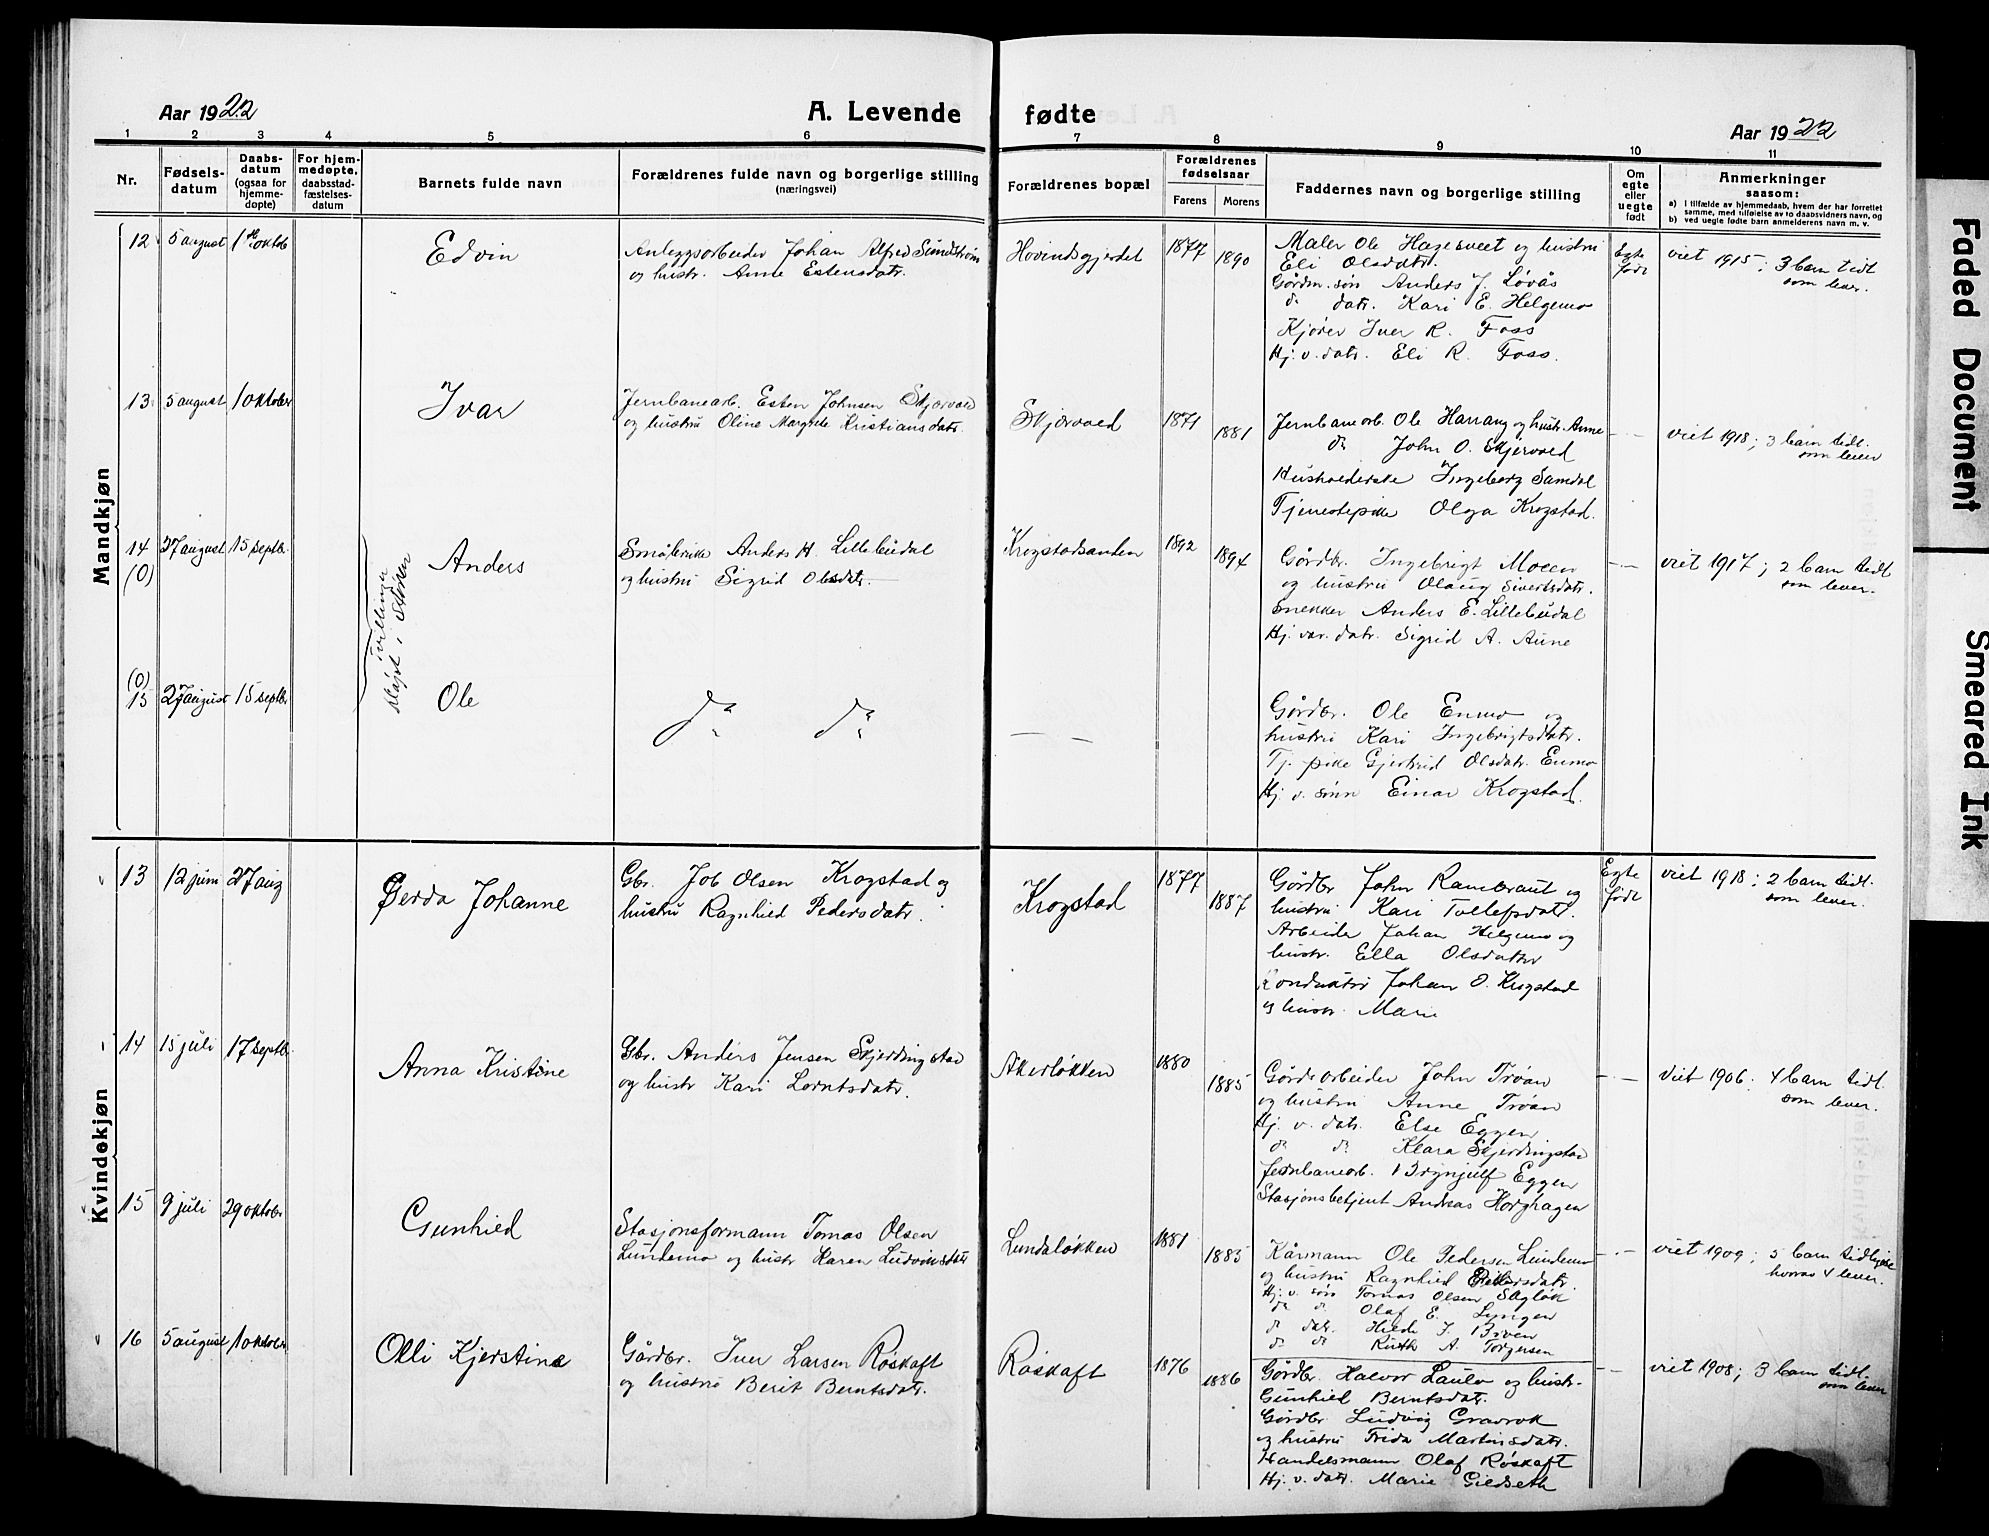 Aar 1922
A. Levende fødte
Aar 1922
1 2 3 4 5 6 7 8 9 10 11
Nr.
Fødsels-
datum
Daabs-
datum
(ogsaa for
hjemme-
døpte)
For hjem-
medøpte,
daabsstad-
fæstelses-
datum
Barnets fulde navn
Forældrenes fulde navn og borgerlige stilling
(næringsvei)
Forældrenes bopæl
Forældrenes
fødselsaar
Farens Morens
Faddernes navn og borgerlige stilling
Om
egte
eller
uegte
født
Anmerkninger
saasom:
a) I tilfælde av hjemmedaab, hvem der har forrettet
samme, med tilføielse av to daabsvidners navn, og
b) ved uegte fødte barn anmelderens navn m. v.
Mandkjøn
12 5 august 1ste oktb
Edvin
Anleggsarbeider Johan Alfred Sundström
og hustr. Anne Estensdatr.
Hovindsgjerdet
1877 1890
Maler Ole Hagesveet og hustru
Eli Olsdatr.
Gårdm. søn Anders J. Løvås
do datr. Kari E. Helgemo
Kjører Iver R. Foss
Hj. v. datr. Eli R. Foss.
Egte
født
viet 1915; 3 barn tidl
som lever.
13 5 august 1 oktober
Ivar
Jernbanearb. Esten Johnsen Skjærvold
og hustru Oline Margrete Kristiansdatr.
Skjærvold
1871 1881
Jernbanearb. Ole Harrang og hustr. Anne
do John O. Skjervold
Husholderske Ingeborg Samdal
Tjenestepike Olga Krogstad.
— · —
viet 1918; 3 barn tidl.
som lever
14 27 august 15 septb.
(0)
Tvillinger
døpt i Støren
Anders
Småbruker Anders H. Lillebudal
og hustru Sigrid Olsdatr.
Krogstadsanden
1892 1894
Gårdbr. Ingebrigt Moen
og hustru Olaug Sivertsdatr.
Snekker Anders E. Lillebudal
Hj. vær. datr. Sigrid A. Aune
— · —
viet 1917; 2 barn tidl
som lever.
(0)
15 27 august 15 septbr
Ole
do do
— —
Gårdbr. Ole Enmo og
hustru Kari Ingebrigtsdatr.
Tj. pike Gjertrud Olsdatr. Enmo
Hj. v. sønn Einar Krogstad.
Kvindekjøn
13 12 juni 27 aug
Gerda Johanne
Gbr. Job Olsen Krogstad og
hustru Ragnhild Pedersdatr.
Krogstad
1877 1887
Gårdbr John Rambraut og
hustru Kari Tollefsdatr.
Arbeider Johan Helgemo og
hustr. Ella Olsdatter
Konduktør Johan O. Krogstad
og hustr. Marie
Egte
født
viet 1918; 2 barn tidl.
som lever.
14 15 juli 17 septbr.
Anna Kristine
Gbr. Anders Jensen Skjerdingstad
og hustr Kari Lorntsdatr.
Akerløkken
1880 1885
Gårdsarbeider John Trøan
og hustru Anne Trøan
Hj. v. datr. Else Eggen
do do Klara Skjerdingstad
Jernbanearb. Brynjulf Eggen
Stasjonsbetjent Andreas Horghagen
— · —
Viet 1906; 4 barn tidl.
som lever.
15 9 juli 29 oktober
Gunhild
Stasjonsformann Tomas Olsen
Lundemo og hustr Karen Ludvinsdatr
Lundaløkken
1881 1885
Kårmann Ole Pedersen Lundemo
og hustru Ragnhild Pedersdatr.
Hj. v. søn Tomas Olsen Sagløk
do do Olaf E. Lyngen
do datr. Hilde J. Boven
do do Ruth A. Torgersen
— · —
viet 1909; 5 barn tidligere
hvorav 4 lever.
16 5 august 1 oktober
Olli Kjerstine
Gårdbr. Iver Larsen Røskaft
og hustru Berit Berntsdatr.
Røskaft
1876 1886
Gårdbr. Halvor Laulo og hustr.
Gunhild Berntsdatr.
Gårdbr Ludvig Gravrok
og hustru Frida Martinsdatr.
Handelsmann Olaf Røskaft
Hj. v. datr. Marie Gildseth
— · —
viet 1908; 3 barn tidl.
som lever
Faded Document
Smeared Ink